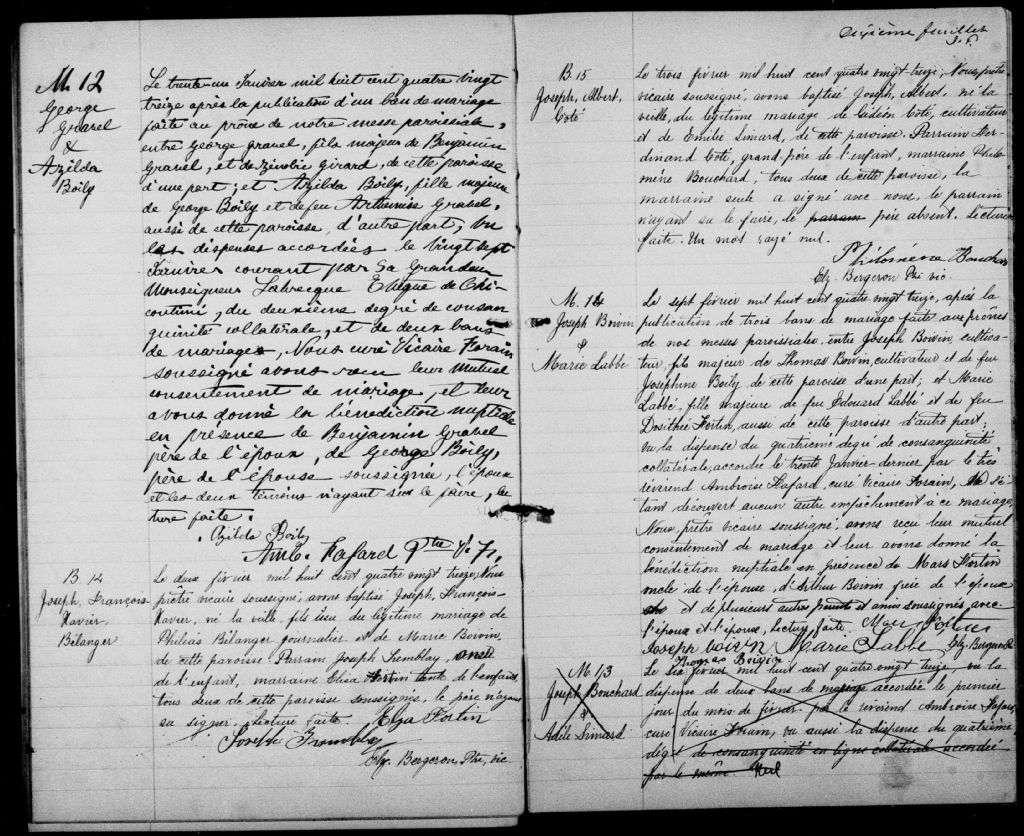 M. 12
George
Gravel
&
Azilda
Boily
Le trente-un Janvier mil huit cent quatre vingt
treize après la publication d'un ban de mariage
faite au prône de notre messe paroissiale,
entre George Gravel, fils majeur de Benjamin
Gravel, et de Zénobie Girard, de cette paroisse
d'une part; et Azilda Boily, fille majeure
de George Boily et de feu Arthémise Gravel,
aussi de cette paroisse, d'autre part; vu
les dispenses accordées le vingt sept
Janvier courant par Sa Grandeur
Monseigneur Labrecque Evêque de Chi-
coutimi, du deuxième degré de consan
guinité collatérale, et de deux bans
de mariage, Nous curé Vicaire Forain
soussigné avons reçu leur mutuel
consentement de mariage, et leur
avons donné la bénédiction nuptiale
en présence de Benjamin Gravel
père de l'époux, de George Boily,
père de l'épouse soussignée, l'époux
et les deux témoins n'ayant su le faire, lec
ture faite.
Azilda Boily
Amb. Fafard Ptre V. F.
B. 14
Joseph, François-
Xavier,
Bélanger
Le deux février mil huit cent quatre vingt treize, Nous
prêtre vicaire soussigné, avons baptisé Joseph, François-
Xavier, né la veille, fils issu du légitime mariage de
Philéas Bélanger journalier et de Marie Boivin,
de cette paroisse. Parrain Joseph Tremblay, oncle
de l'enfant, marraine Eliza Fortin tante de l'enfant
tous deux de cette paroisse soussignés, le père n'ayant
su signer. Lecture faite. Elza Fortin
Joseph Trembley
Elz. Bergeron, Ptre, vic
Sixième feuillet
B. 15
Joseph, Albert,
Côté
Le trois février mil huit cent quatre vingt treize, Nous prêtre
vicaire soussigné, avons baptisé Joseph, Albert, né la
veille, du légitime mariage de Gédéon Côté, cultivateur
et de Emilie Simard, de cette paroisse. Parrain Fer-
dinand Côté, grand père de l'enfant, marraine Philo-
mène Bouchard, tous deux de cette paroisse, la
marraine seule a signé avec nous, le parrain
n'ayant su le faire, le parrain père absent. Lecture
faite. Un mot rayé nul.
Philomène Bouchard
Elz. Bergeron Ptre vic.
M. 14
Joseph Boivin
&
Marie Labbé
Le sept février mil huit cent quatre vingt treize, après la
publication de trois bans de mariage faite aux prônes
de nos messes paroissiales, entre Joseph Boivin, cultiva-
teur, fils majeur de Thomas Boivin, cultivateur et de feu
Joséphine Boily de cette paroisse d'une part; et Marie
Labbé, fille majeure de feu Edouard Labbé et de feu
Dosithée Fortin, aussi de cette paroisse d'autre part;
vu la dispense du quatrième degré de consanguinité
collatérale, accordée le trente Janvier dernier par le très
révérend Ambroise Fafard, curé Vicaire Forain, ne s'é-
tant découvert aucun autre empêchement à ce mariage,
Nous, prêtre vicaire soussigné, avons reçu leur mutuel
consentement de mariage et leur avons donné la
bénédiction nuptiale en présence de Mars Fortin
oncle de l'épouse, d'Arthur Boivin frère de l'époux
et de plusieurs autres parents et amis soussignés avec
l'époux et l'épouse, lecture faite. Mars Fortin
Joseph Boivin Marie Labbé Elz. Bergeron Ptre
Thomas Boivin
M. 13
Joseph Bouchard
&
Adèle Simard
Le six février mil huit cent quatre vingt treize, vu la
dispense de deux bans de mariage accordée le premier
jour du mois de février par le révérend Ambroise Fafard,
curé Vicaire Forain, vu aussi la dispense du quatrième
degré de consanguinité en ligne collatérale accordée
par le même. Nul